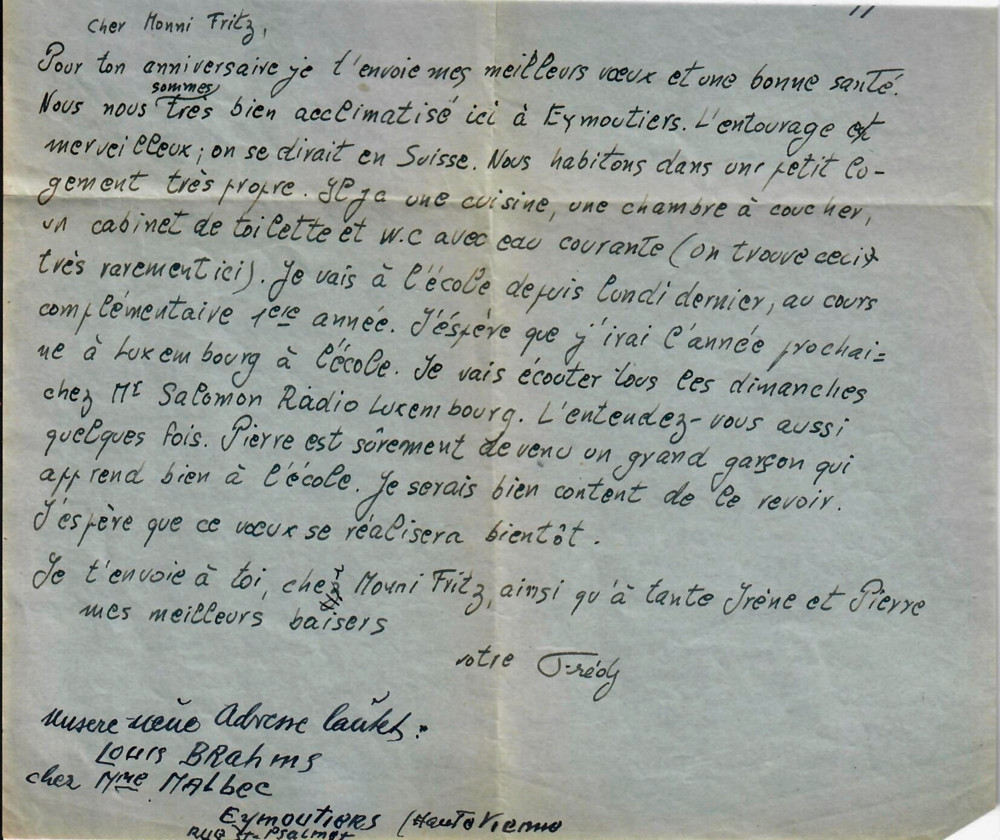 cher Monni Fritz,
Pour ton anniversaire je t'envoie mes meilleurs vœux et une bonne santé.
Nous nous sommes très bien acclimatisé ici à Eymoutiers. L'entourage est
merveilleux; on se dirait en Suisse. Nous habitons dans un petit lo-
gement très propre. Il y a une cuisine, une chambre à coucher,
un cabinet de toilette et w.c avec eau courante (on trouve ceci
très rarement ici). Je vais à l'école depuis lundi dernier, au cours
complémentaire 1ère année. J'éspère que j'irai l'année prochai=
ne à Luxembourg à l'école. Je vais écouter tous les dimanches
chez Mr Salomon Radio Luxembourg. L'entendez-vous aussi
quelques fois. Pierre est sûrement devenu un grand garçon qui
apprend bien à l'école. Je serais bien content de le revoir.
J'espère que ce vœux se réalisera bientôt.
Je t'envoie à toi, cher Monni Fritz, ainsi qu'à tante Irène et Pierre
mes meilleurs baisers
votre Frédy
Unsere neue Adresse lautet:
Louis BRahms
chez Mme MALbec
Eymoutiers (Haute Vienne
RUE St-Psalmet